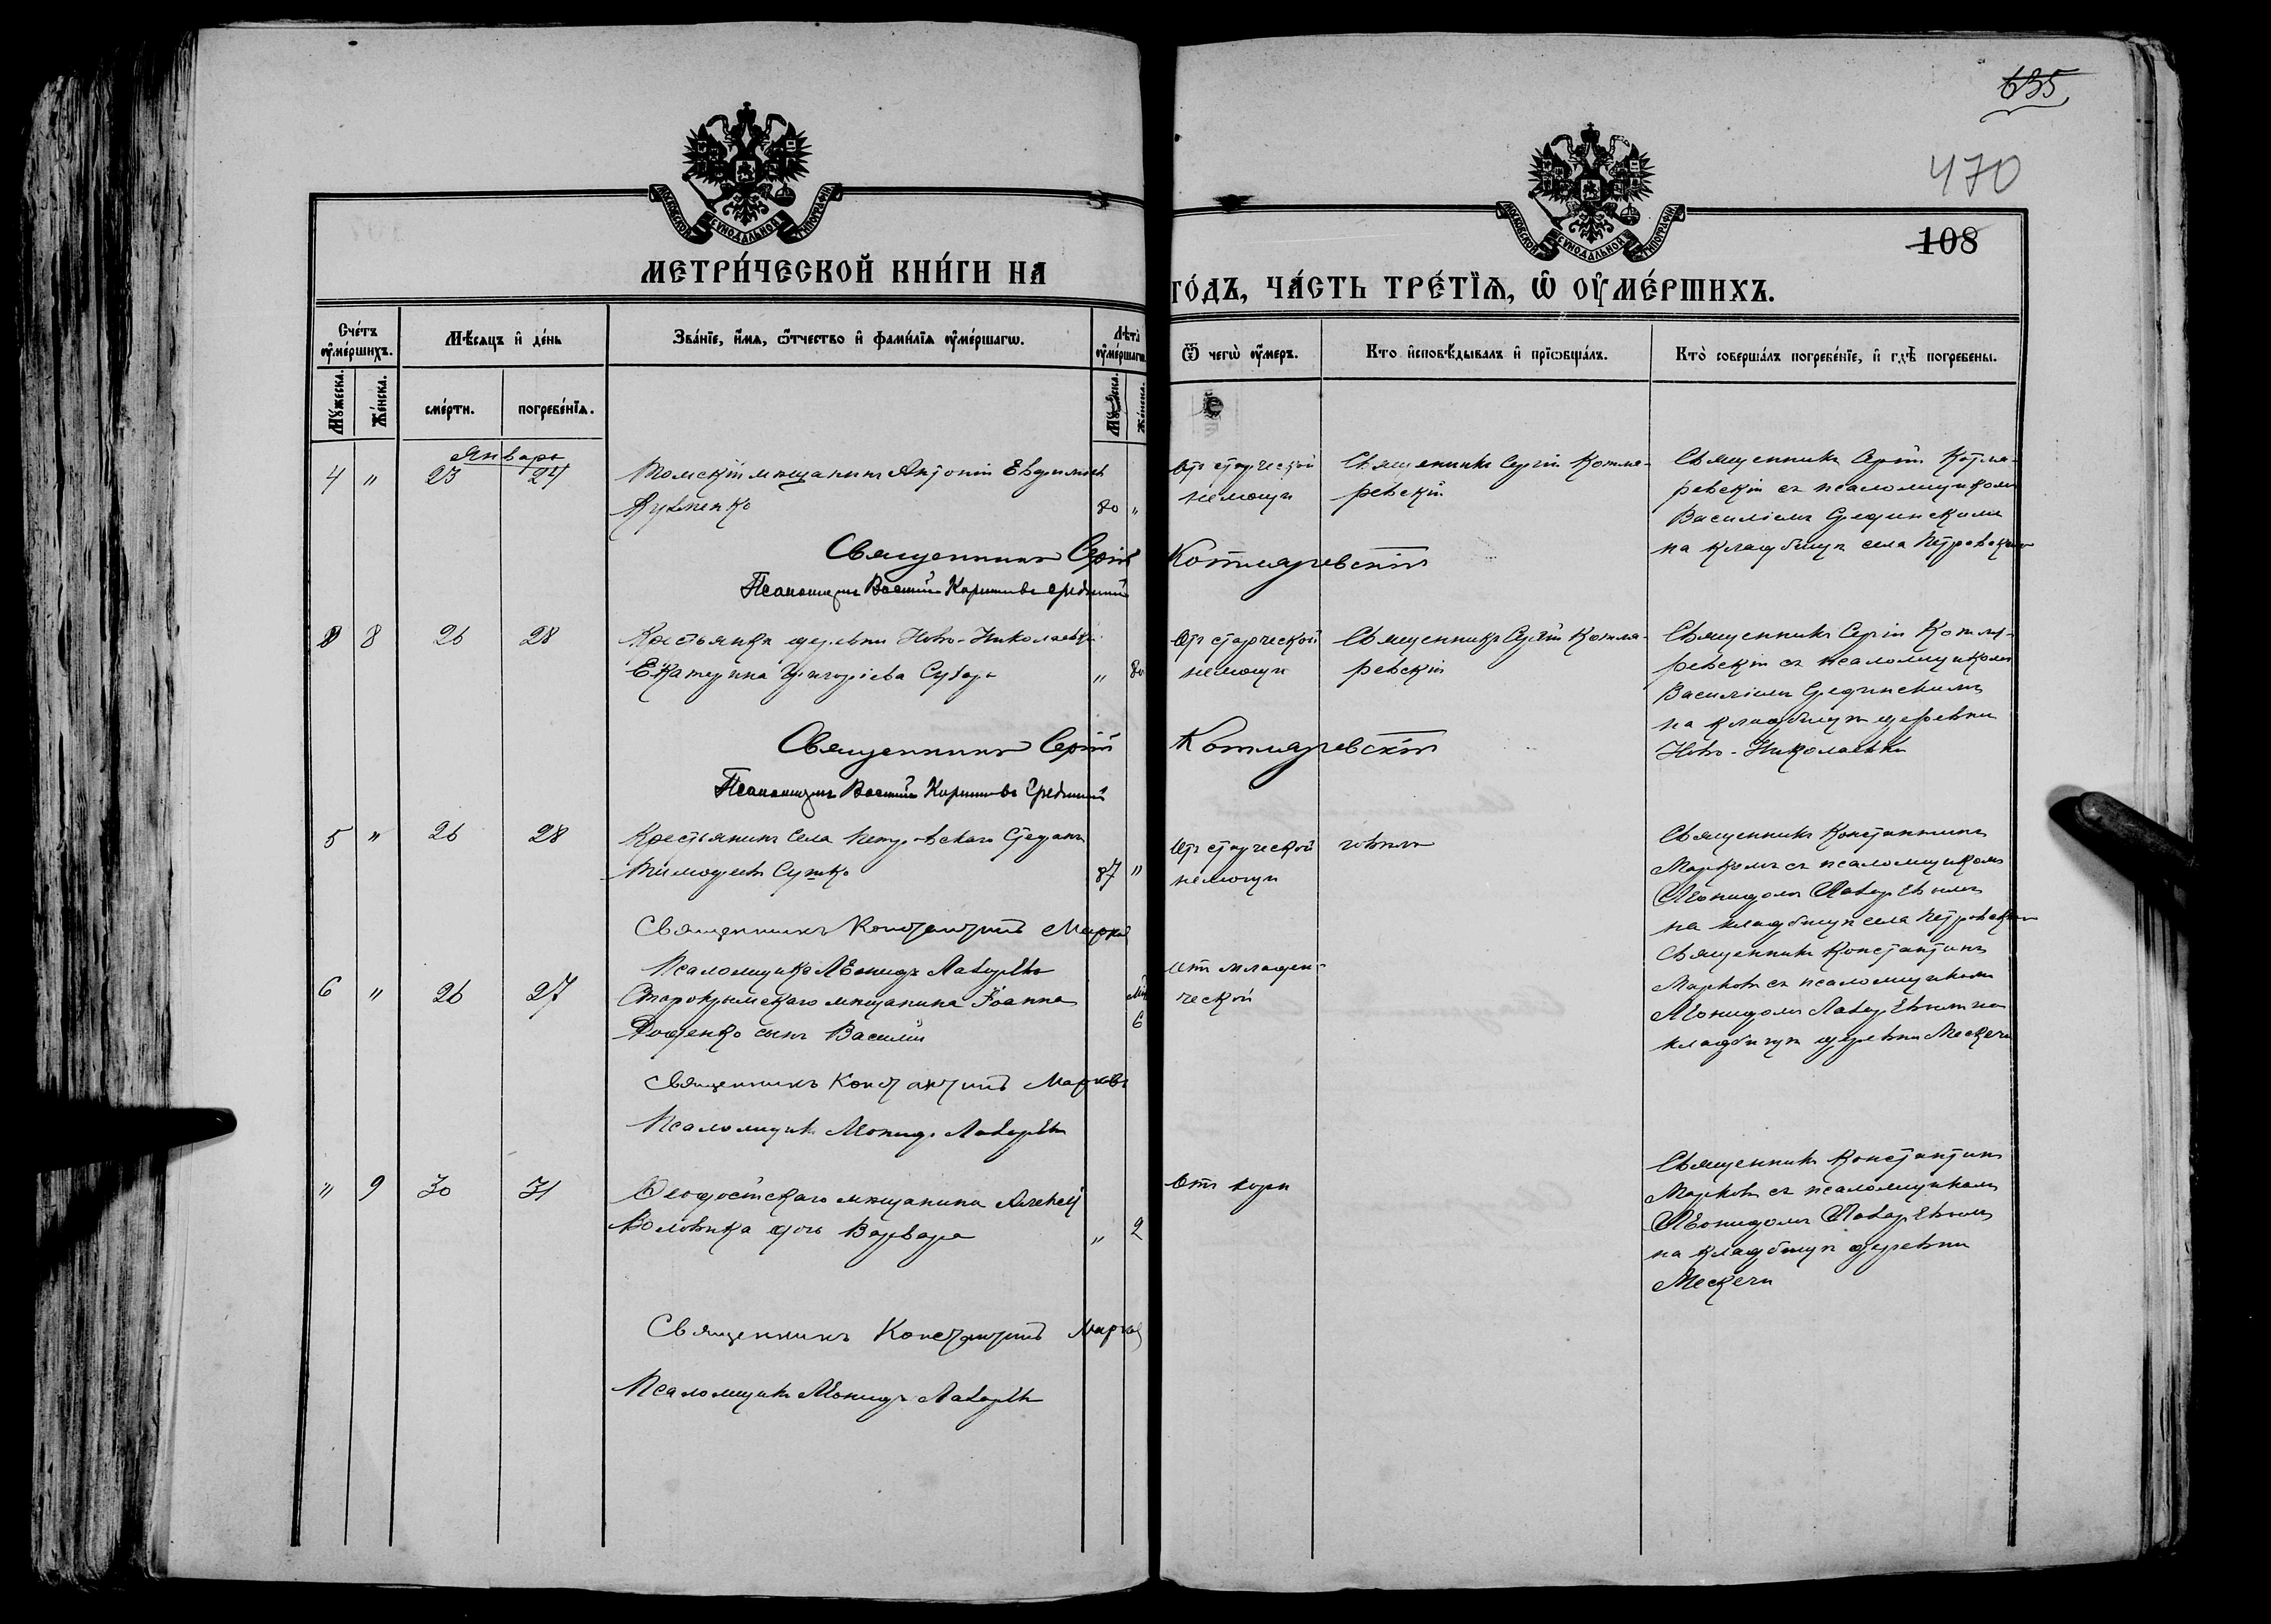 635
470
108
МОСКОВСКОЙ СѴНОДАЛЬНОЙ ТИПОГРАФІИ
МОСКОВСКОЙ СѴНОДАЛЬНОЙ ТИПОГРАФІИ
МЕТРИ́ЧЕСКОЙ КНИ́ГИ НА
ГО́ДЪ, ЧА́СТЬ ТРЕ́ТЇѦ, Ѡ҆ ОУ҆МЕ́РШИХЪ.
Сче́тъ оу҆ме́ршихъ.
Мꙋ́жеска.
Же́нска.
Мѣ́сяцъ и҆ де́нь
сме́рти.
погребе́нїѧ.
Зва́нїе, и҆́мя, ѻ҆́тчество и҆ фами́лїѧ оу҆ме́ршагѡ.
Лѣ́та оу҆ме́ршагѡ.
Мꙋ́жеска.
Же́нска.
Ѿ чегѡ̀ оу҆́меръ.
Кто̀ и҆сповѣ́дывалъ и҆ прїѡбща́лъ.
Кто̀ соверша́лъ погребе́нїе, и҆ гдѣ̀ погребены.
Январь
4 " 23 24 Томскій мѣщанинъ Антоній Евфиміевъ
80 "
Отъ старческой
немощи
Священникъ Сергій Котля-
ревскій
Священникъ Сергій Котля-
ревскій съ псаломщикомъ
Василіемъ Срединскимъ
на кладбищѣ села Петровскаго
Священникъ Сергій Котляревскій
Псаломщикъ Василій Средницкій
8 26 28 Крестьянка деревни Ново-Николаевки
Екатерина Григоріева
" 80
Отъ старческой
немощи
Священникъ Сергій Котля-
ревскій
Священникъ Сергій Котля-
ревскій съ псаломщикомъ
Василіемъ Срединскимъ
на кладбищѣ деревни
Ново-Николаевки
Священникъ Сергій Котляревскій
Псаломщикъ Василій Средницкій
5 " 26 28 Крестьянинъ села Петровскаго Стефанъ
Тимофеевъ Сушко 87 "
Отъ старческой
немощи
Священникъ Константинъ
Марковъ съ псаломщикомъ
Леонидомъ Лавровымъ
на кладбищѣ села Петровскаго
Священникъ Константинъ Марковъ
Псаломщикъ Леонидъ
6 " 26 27 Старокрымскаго мѣщанина Іоанна
Доценко сынъ Василій
6
Отъ младен-
ческой
Священникъ Константинъ
Марковъ съ псаломщикомъ
Леонидомъ на
кладбищѣ деревни Мескечи
Священникъ Константинъ Марковъ
Псаломщикъ Леонидъ
" 9 30 31 Ѳеодосійскаго мѣщанина Алексѣя
дочь Варвара " 2
Отъ кори
Священникъ Константинъ
Марковъ съ псаломщикомъ
Леонидомъ
на кладбищѣ деревни
Мескечи
Священникъ Константинъ Марковъ
Псаломщикъ Леонидъ